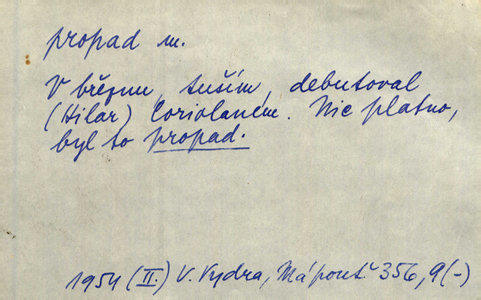 propad m.
V březnu, tuším, debutoval
(Hilar) Coriolanem. Nic platno,
byl to propad.
1954 (II.) V. Vydra, Má pouť 356, 9 (-)